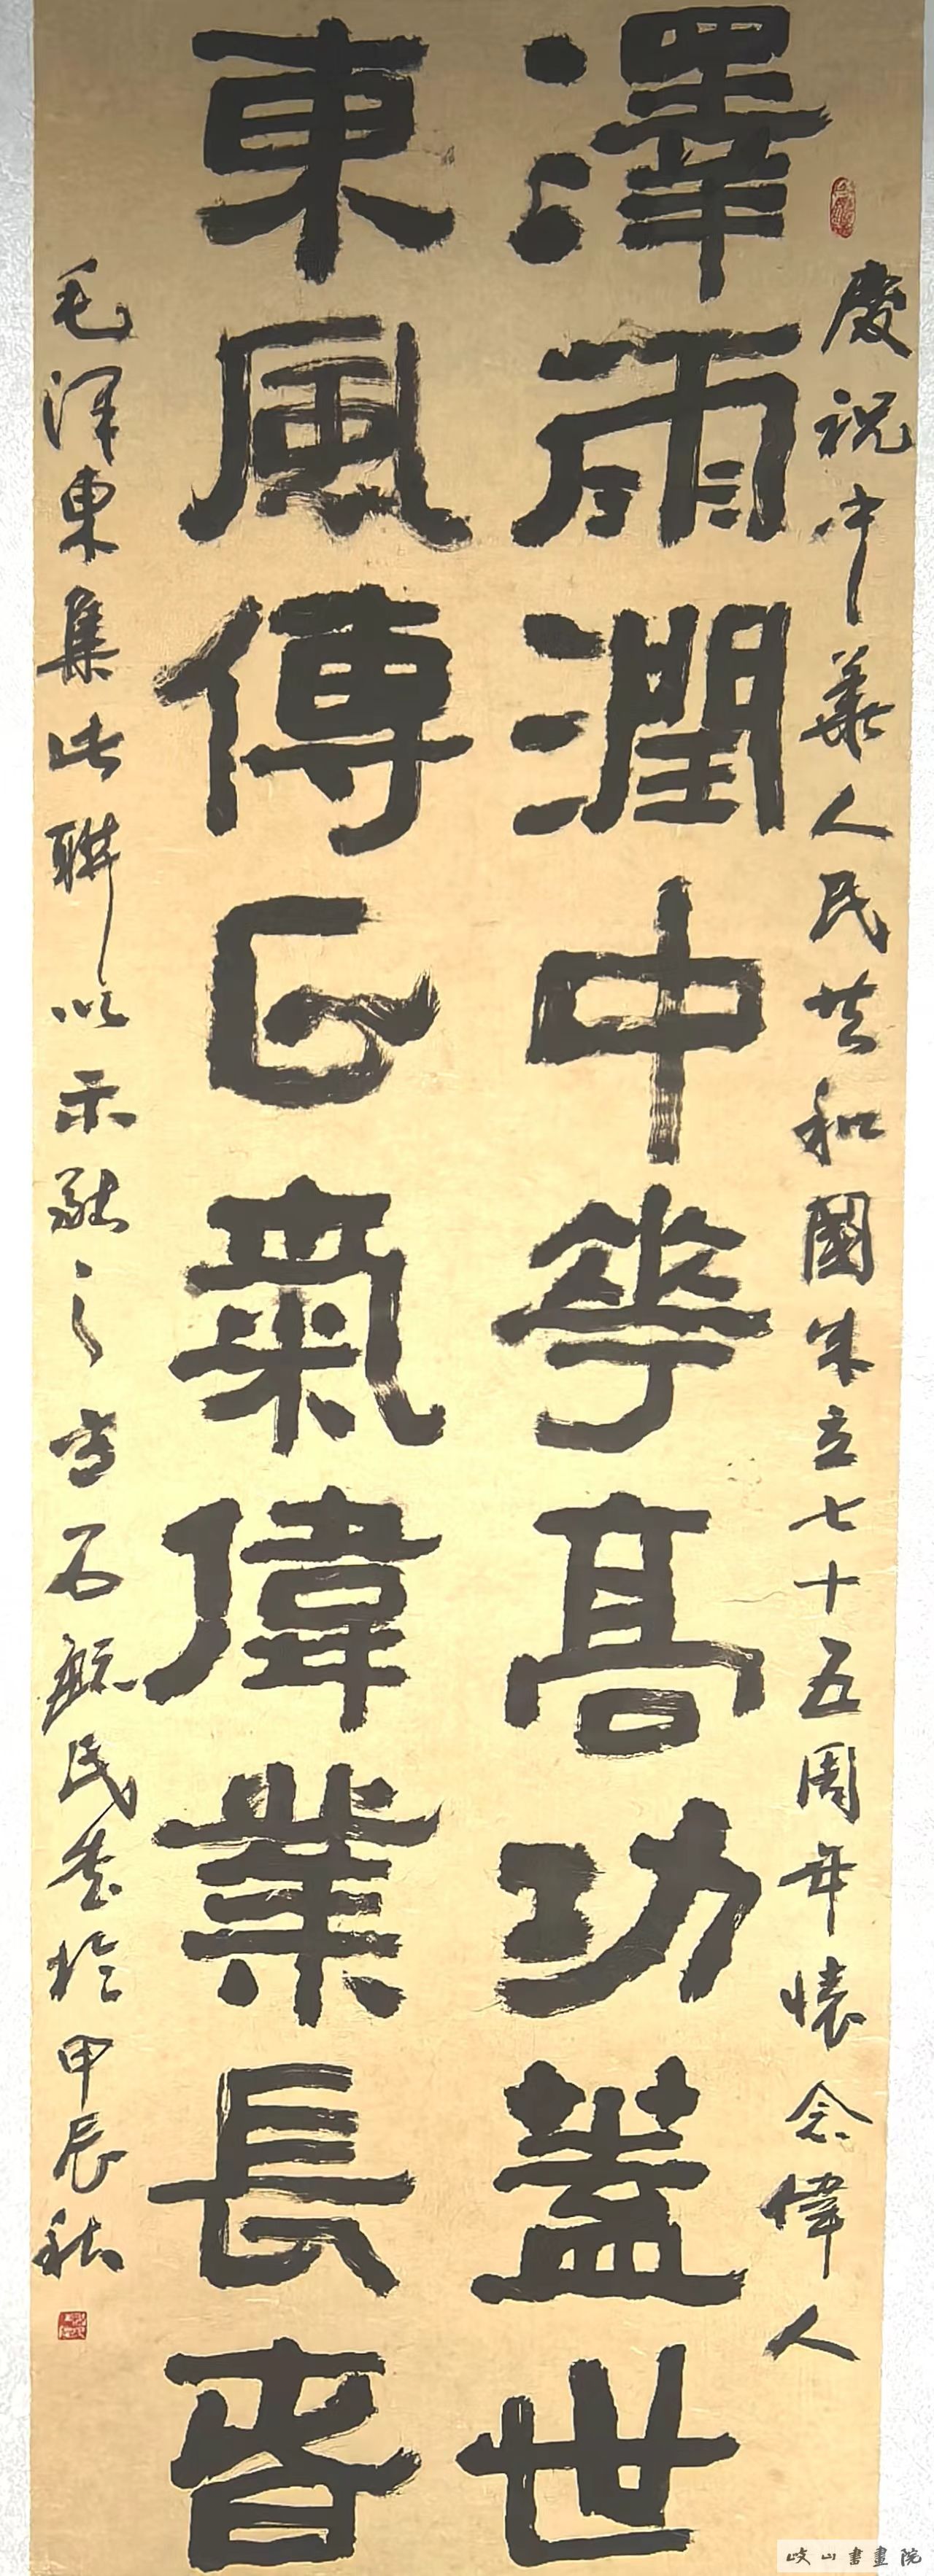 慶祝中華人民共和國成立七十五周年懷念偉人
澤雨潤中華高功蓋世
東風傳氣偉業長春
毛泽東集此聯以示之石毓民書於甲辰秋
岐山書畫院